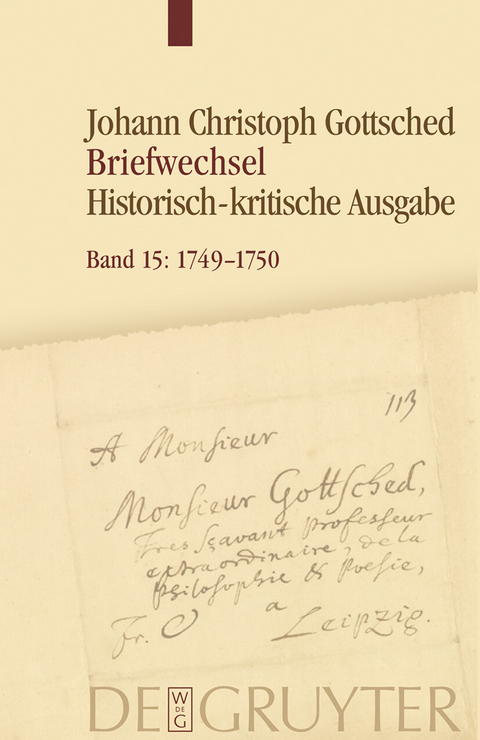 Johann Christoph Gottsched
Briefwechsel
Historisch-kritische Ausgabe
Band 15: 1749–1750
113
A Monsieur
Monsieur Gottsched,
Tres sçavant Professeur
extraordinaire, de la
Philosophie & Poësie,
Fr.
a
Leipzig.
DE GRUYTER
W
DE
G